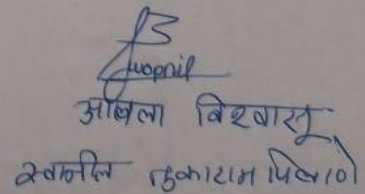 Swapnil
आपला विश्वासू
स्वप्नील तुकाराम पिसाळ